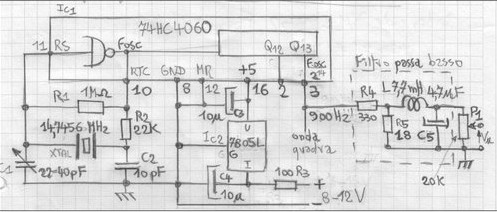 IC1
74HC4060
11 RS
Fosc
Q12 Q13
Fosc
2¹⁴
RTC GND MR +5
10 8 12 16 2 3
R1 1MΩ
R2
22K
10µ C3
900Hz
14,7456 MHz
XTAL
22-40pF
C2
10pF
IC2
7805L
U
G
I
onda
quadra
C4
10µ
100 R3
+
8-12V
Filtro passa basso
L 7,7mH 4,7µF
R4
330
R5
18
C5
P1
Vu
20K